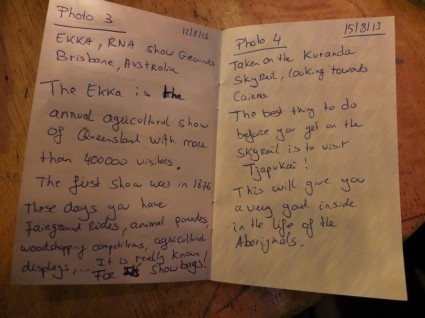 Photo 3
12/8/13
EKKA, RNA Show Grounds
Brisbane, Australia
The Ekka is the
annual agricultural show
of Queensland with more
than 400000 visitors.
The first show was in 1876
These days you have
fairground Rides, animal parades,
woodchopping competitions, agricultural
displays,... It is really known
For Showbags!
Photo 4
15/8/13
Taken on the Kuranda
SkyRail, looking towards
Cairns.
The best thing to do
before you get on the
Skyrail is to visit
Tjapukai!
This will give you
a very good inside
in the life of the
Aboriginals.